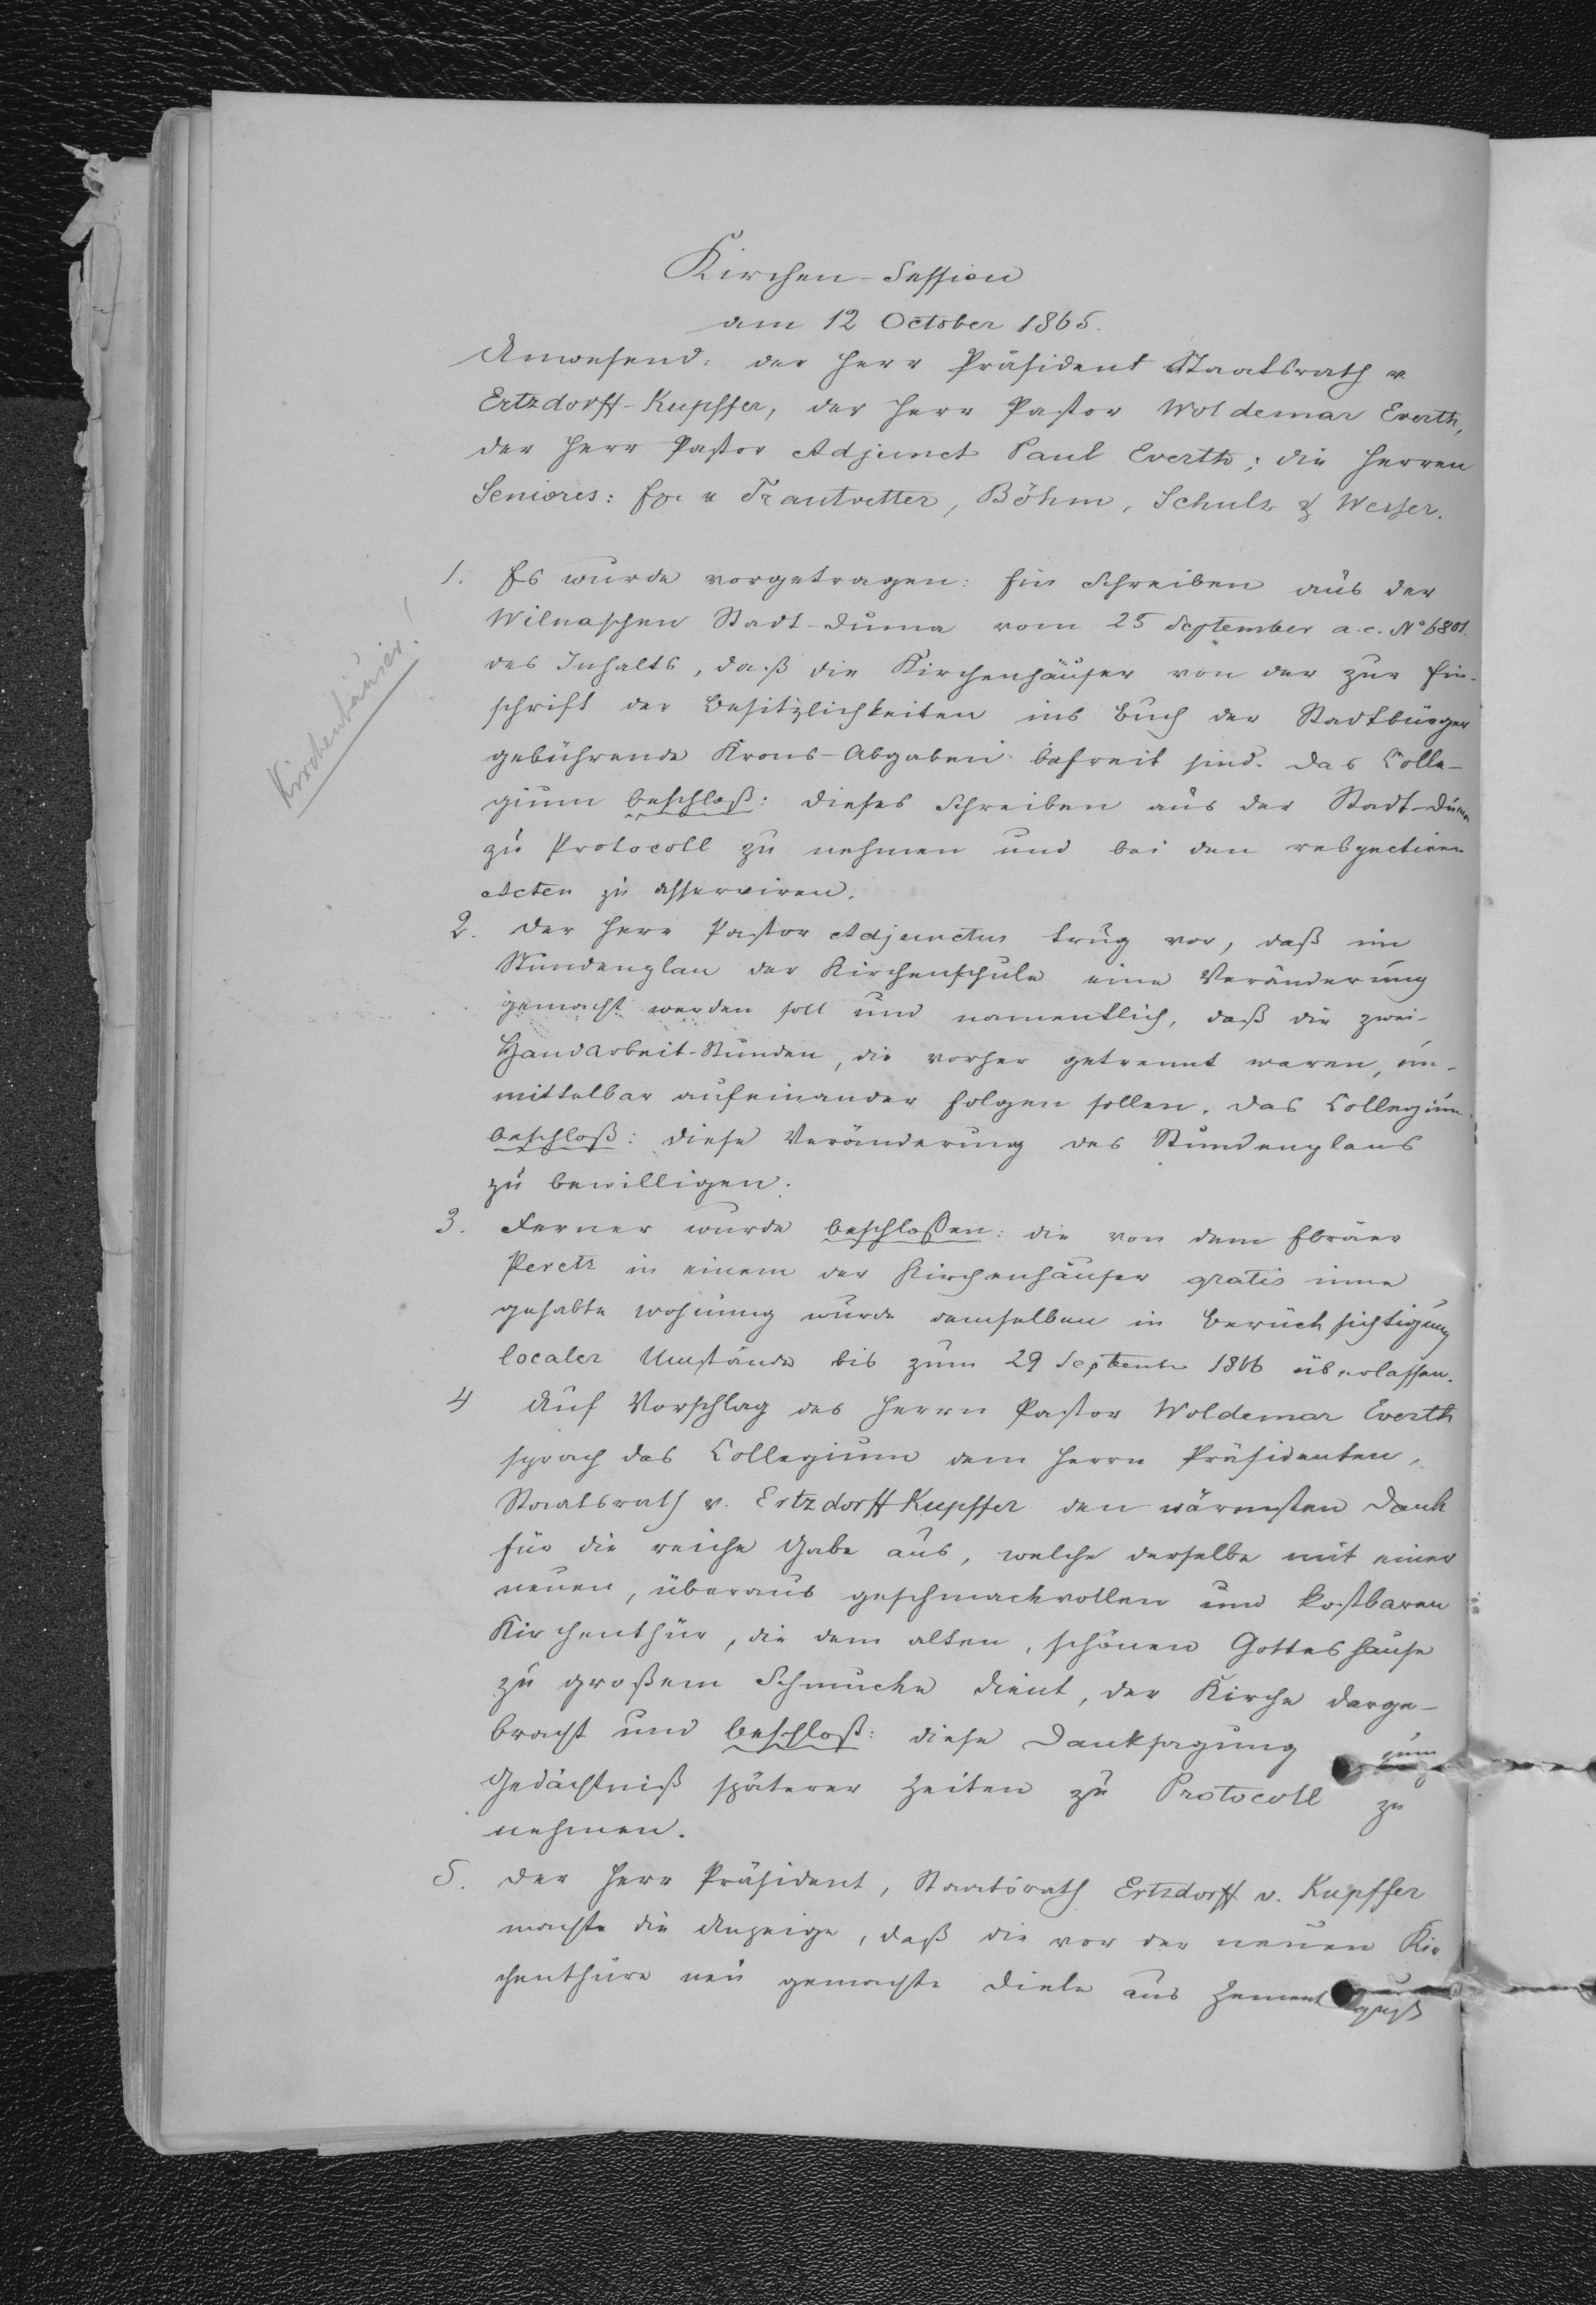 Kirchen-Session
am 12 October 1865.
Anwesend: der Herr Präsident Staatsrath v.
Ertzdorff-Kupffer, der Herr Pastor Woldemar Everth,
der Herr Pastor Adjunct Paul Everth; die Herren
Seniores: v Trautvetter, Böhm, Schulz & Wesser.
1. Es wurde vorgetragen: Ein Schreiben aus der
Wilnaschen Stadt-Duma vom 25 September a.c. No 6801.
des Inhalts, daß die Kirchenhäuser von der zur Ein-
schrift der Besitzlichkeiten ins Buch der Stadtbürger
gebührende Krons-Abgaben befreit sind. Das Colle-
gium beschloß: dieses Schreiben aus der Stadt-Duma
zu Protocoll zu nehmen und bei den respectiven
Acten zu asserviren.
Kirchenhäuser!
2. Der Herr Pastor Adjunctus trug vor, daß im
Stundenplan der Kirchenschule eine Veränderung
gemacht werden soll und namentlich, daß die zwei-
Handarbeit-Stunden, die vorher getrennt waren, un-
mittelbar aufeinander folgen sollen. Das Collegium
beschloß: diese Veränderung des Stundenplans
zu bewilligen.
3. Ferner wurde beschloßen: die von dem Ebräer
Peretz in einem der Kirchenhäuser gratis inne
gehabte Wohnung wurde demselben in Berücksichtigung
localer Umstände bis zum 29 September 1866 überlassen.
4 Auf Vorschlag des Herrn Pastor Woldemar Everth
sprach das Collegium dem Herrn Präsidenten,
Staatsrath v. Ertzdorff Kupffer den wärmsten Dank
für die reiche Gabe aus, welche derselbe mit einer
neuen, überaus geschmackvollen und kostbaren
Kirchenthür, die dem alten, schönen Gotteshause
zu großem Schmucke dient, der Kirche darge-
bracht und beschloß: diese Danksagung zum
Gedächtniß späterer Zeiten zu Protocoll zu
nehmen.
5. Der Herr Präsident, Staatsrath Ertzdorff v. Kupffer
machte die Anzeige, daß die vor der neuen Kir
chenthüre neu gemachte Diele aus Zement